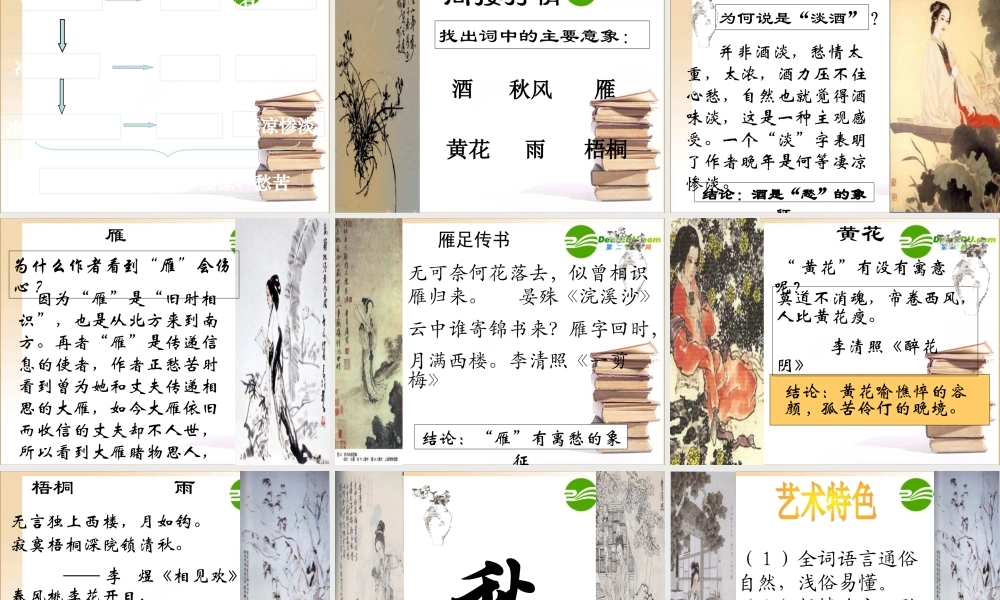 凉惨淡
愁苦
找出词中的主要意象：
酒 秋风 雁
黄花 雨 梧桐
为何说是“淡酒”？
并非酒淡，愁情太
重，太浓，酒力压不住
心愁，自然也就觉得酒
味淡，这是一种主观感
受。一个“淡”字表明
了作者晚年是何等凄凉
惨淡。
结论：酒是“愁”的象
征
雁
为什么作者看到“雁”会伤
心？
因为“雁”是“旧时相
识”，也是从北方来到南
方。再者“雁”是传递信
息的使者，作者正愁苦时
看到曾为她和丈夫传递相
思的大雁，如今大雁依旧
而收信的丈夫却不人世，
所以看到大雁睹物思人，
雁足传书
无可奈何花落去，似曾相识
雁归来。 晏殊《浣溪沙》
云中谁寄锦书来？雁字回时，
月满西楼。李清照《一剪
梅》
结论：“雁”有离愁的象
征
黄花
“黄花”有没有寓意
呢？
莫道不消魂，帘卷西风，
人比黄花瘦。
李清照《醉花
阴》
结论：黄花喻憔悴的容
颜，孤苦伶仃的晚境。
梧桐 雨
无言独上西楼，月如钩。
寂寞梧桐深院锁清秋。
——李 煜《相见欢》
春风桃李花开日，
秋
艺术特色
（1）全词语言通俗
自然，浅俗易懂。